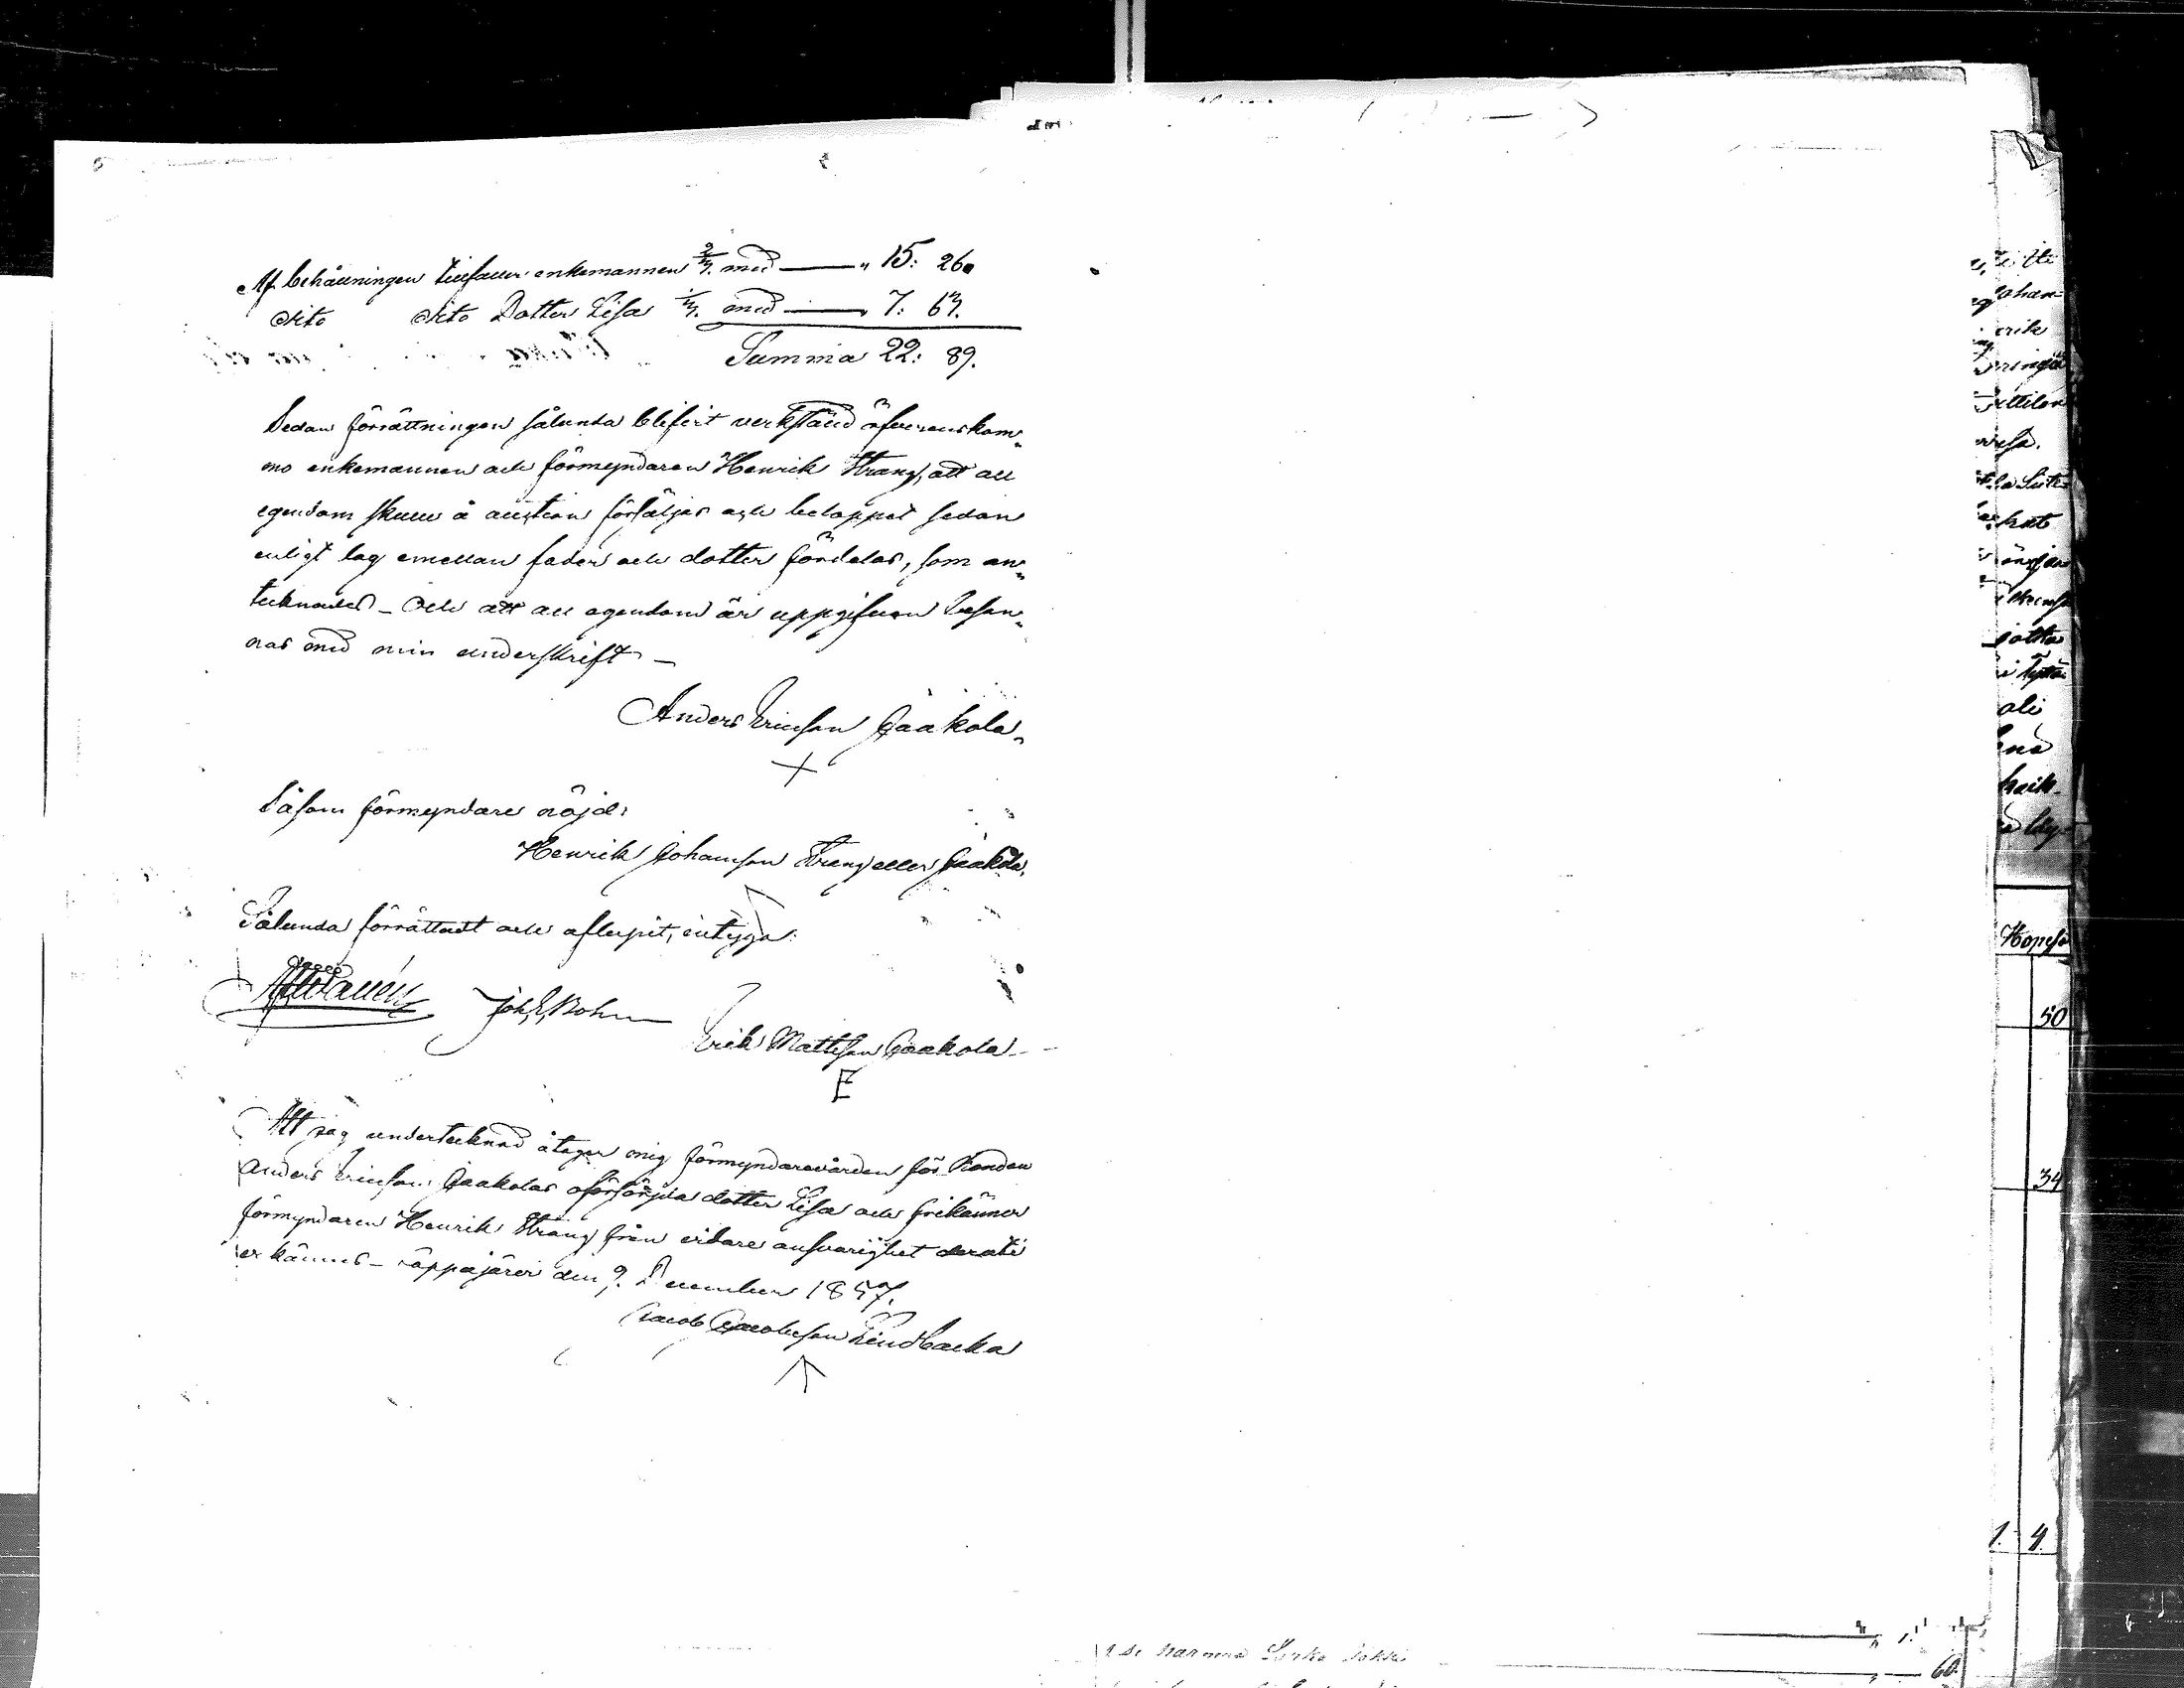 Af behållningen tillfaller enkemannen 2/3. med — " 15: 26.
dito dito Dotter Lisa 1/3. med — " 7: 63.
Summa 22: 89.
Sedan förrättningen sålunda blifvit verkställd öfverenskom-
mo enkemannen och förmyndaren Henrik Strang, att all
egendom skulle å auction försäljas och beloppet sedan
enligt lag emellan fader och dotter fördelas, som an-
tecknades – Och att all egendom är uppgifven besan-
nas med min underskrift –
Anders Ericsson Jaakola
Såsom förmyndare nöjd:
Henrik Johansson Strang eller Jaakola.
Sålunda förrättadt och aflupit, intyga:
Joh. E. Bohm
Erik Mattsson Jaakola
E
Att jag undertecknad åtager mig förmyndarevården för Bonden
Anders Ericsson Jaakolas oförsörjda dotter Lisa och frikänner
förmyndaren Henrik Strang från vidare ansvarighet derati
erkännes – Lappajärvi den 9. December 1857.
Jacob Jacobsson Lindbacka
erik
ali
Hopeja
50
34
1. 4.
60.